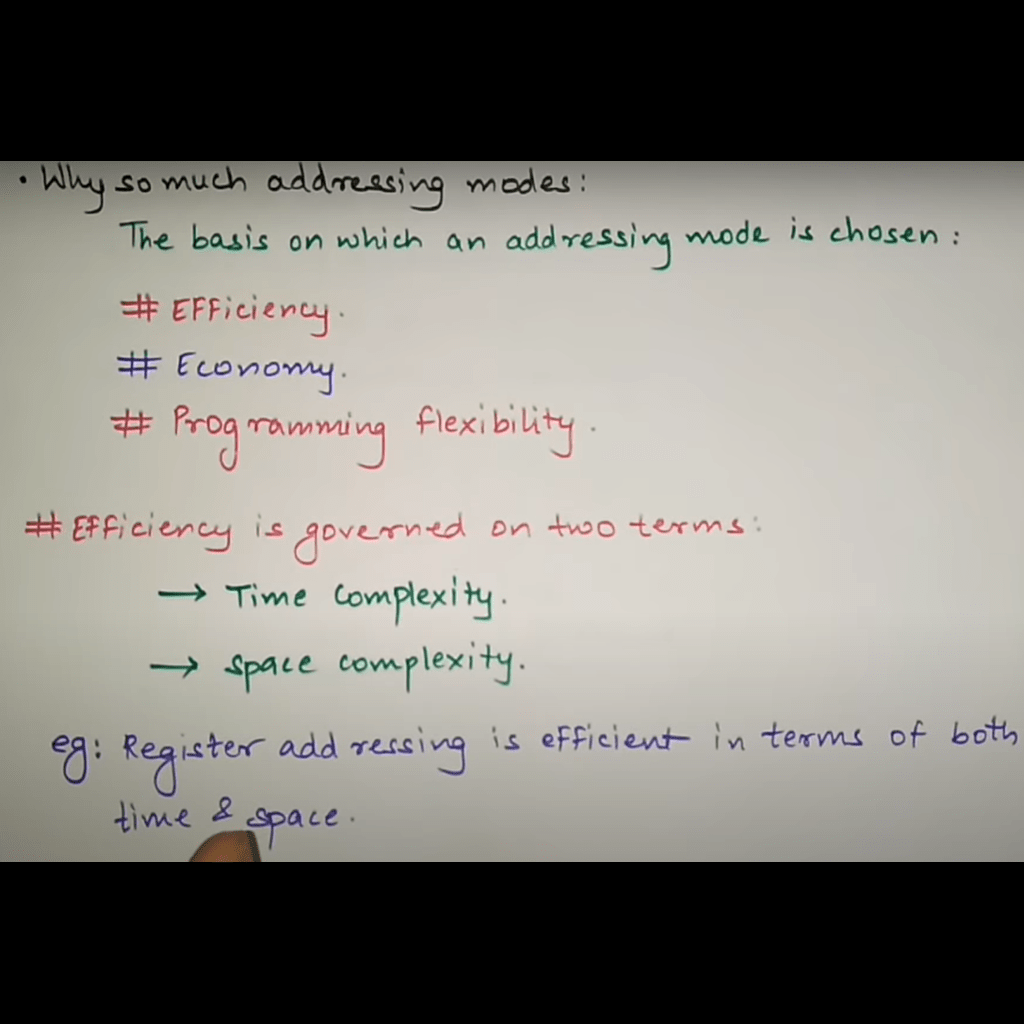 · Why so much addressing modes:
The basis on which an addressing mode is chosen:
# Efficiency.
# Economy.
# Programming flexibility.
# Efficiency is governed on two terms:
→ Time complexity.
→ space complexity.
eg: Register addressing is efficient in terms of both
time & space.